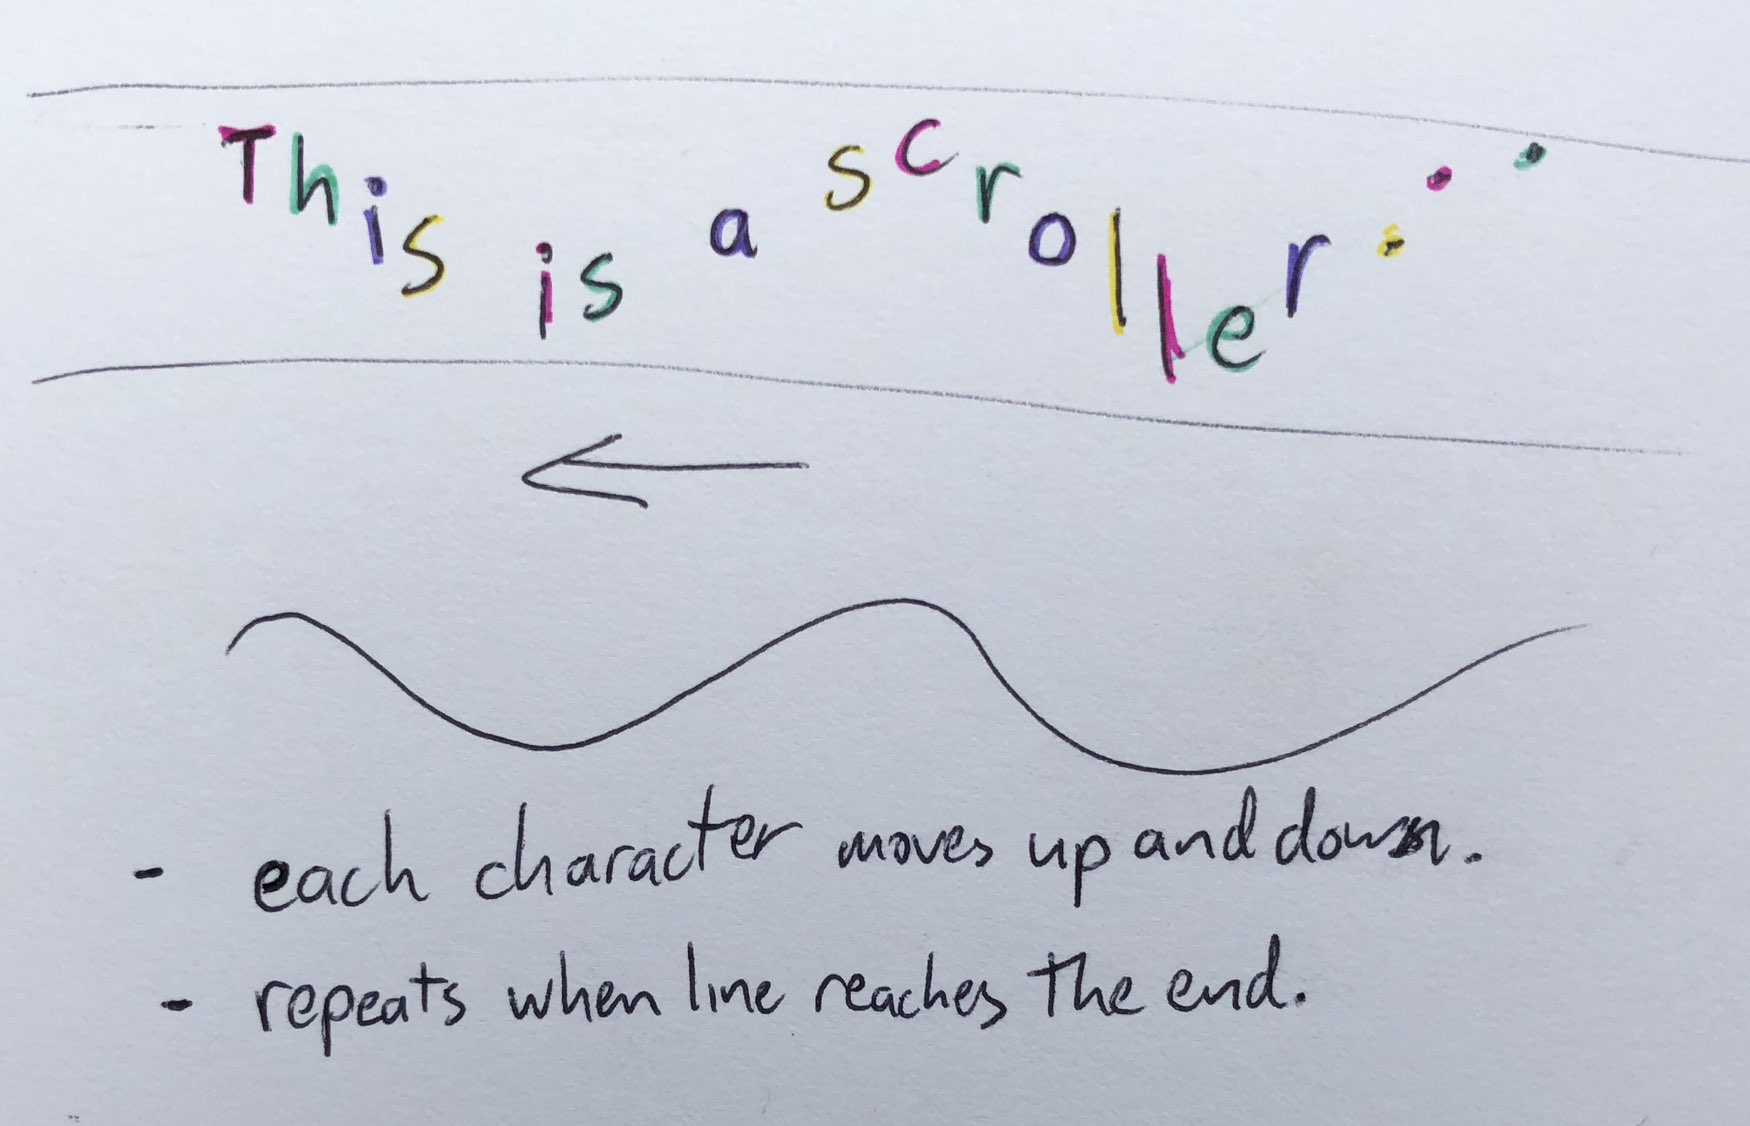 This is a scroller...
- each character moves up and down.
- repeats when line reaches the end.